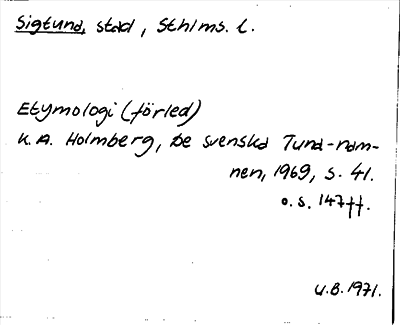 Sigtuna, stad, Sthlms. l.
Etymologi (förled)
K.A. Holmberg, De svenska Tuna-nam-
nen, 1969, s. 41.
o. s. 147ff.
U.B. 1971.